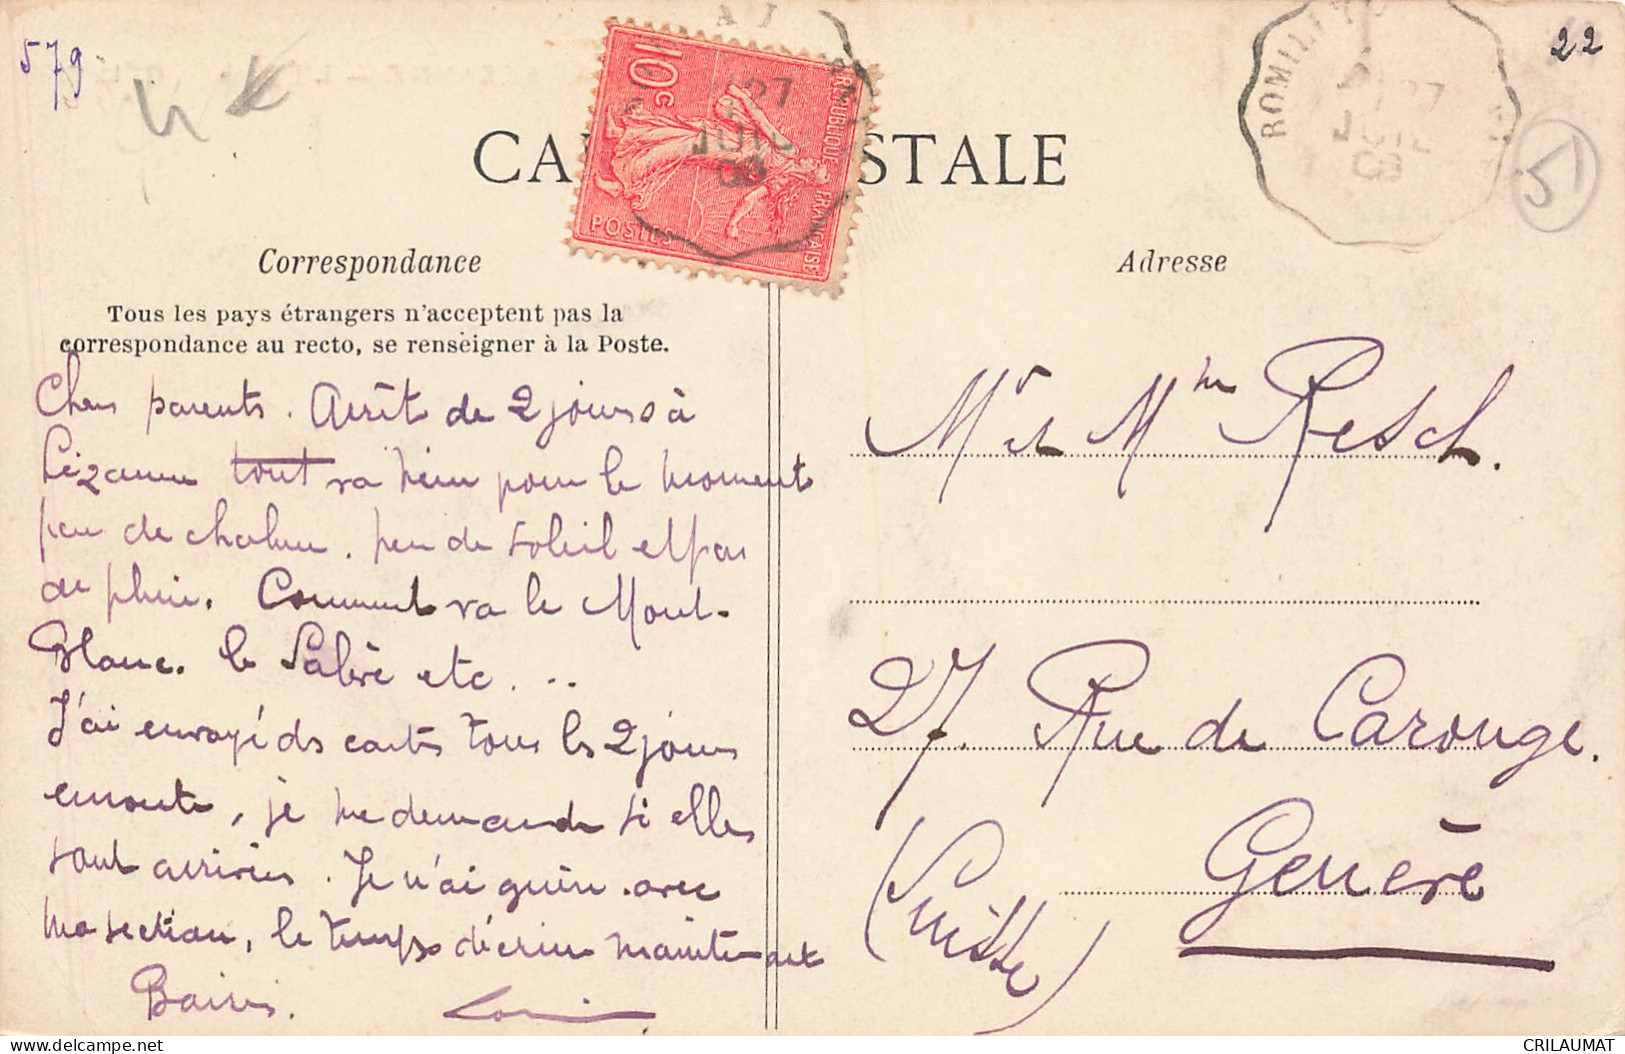 579
22
51
CARTE POSTALE
10c
RÉPUBLIQUE FRANÇAISE
POSTES
27
JUIL
08
ROMILLY
27
JUIL
08
Correspondance
Adresse
Tous les pays étrangers n'acceptent pas la
correspondance au recto, se renseigner à la Poste.
Chers parents. Arrêt de 2 jours à
Sézanne tout va bien pour le moment
peu de chaleur. peu de soleil et pas
de pluie. Comment va le Mont-
Blanc. le Salève etc...
J'ai envoyé ds cartes tous les 2 jours
en route, je me demande si elles
sont arrivées. Je n'ai guère avec
ma section, le temps d'écrire maintenant
Baisers.
Mr et Mme Resch.
27. Rue de Carouge.
Genève
(Suisse)
CRILAUMAT